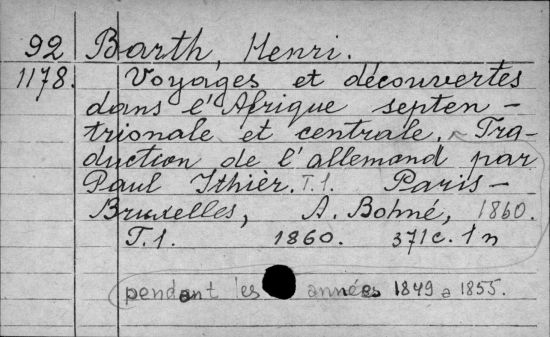 92 Barth, Henri.
1178. Voyages et découvertes
dans l'Afrique septen-
trionale et centrale. Tra-
duction de l'allemand par
Paul Ithièr. T.1. Paris-
Bruxelles, A. Bohné, 1860.
T.1. 1860. 371c. 1n
pendant les années 1849 a 1855.